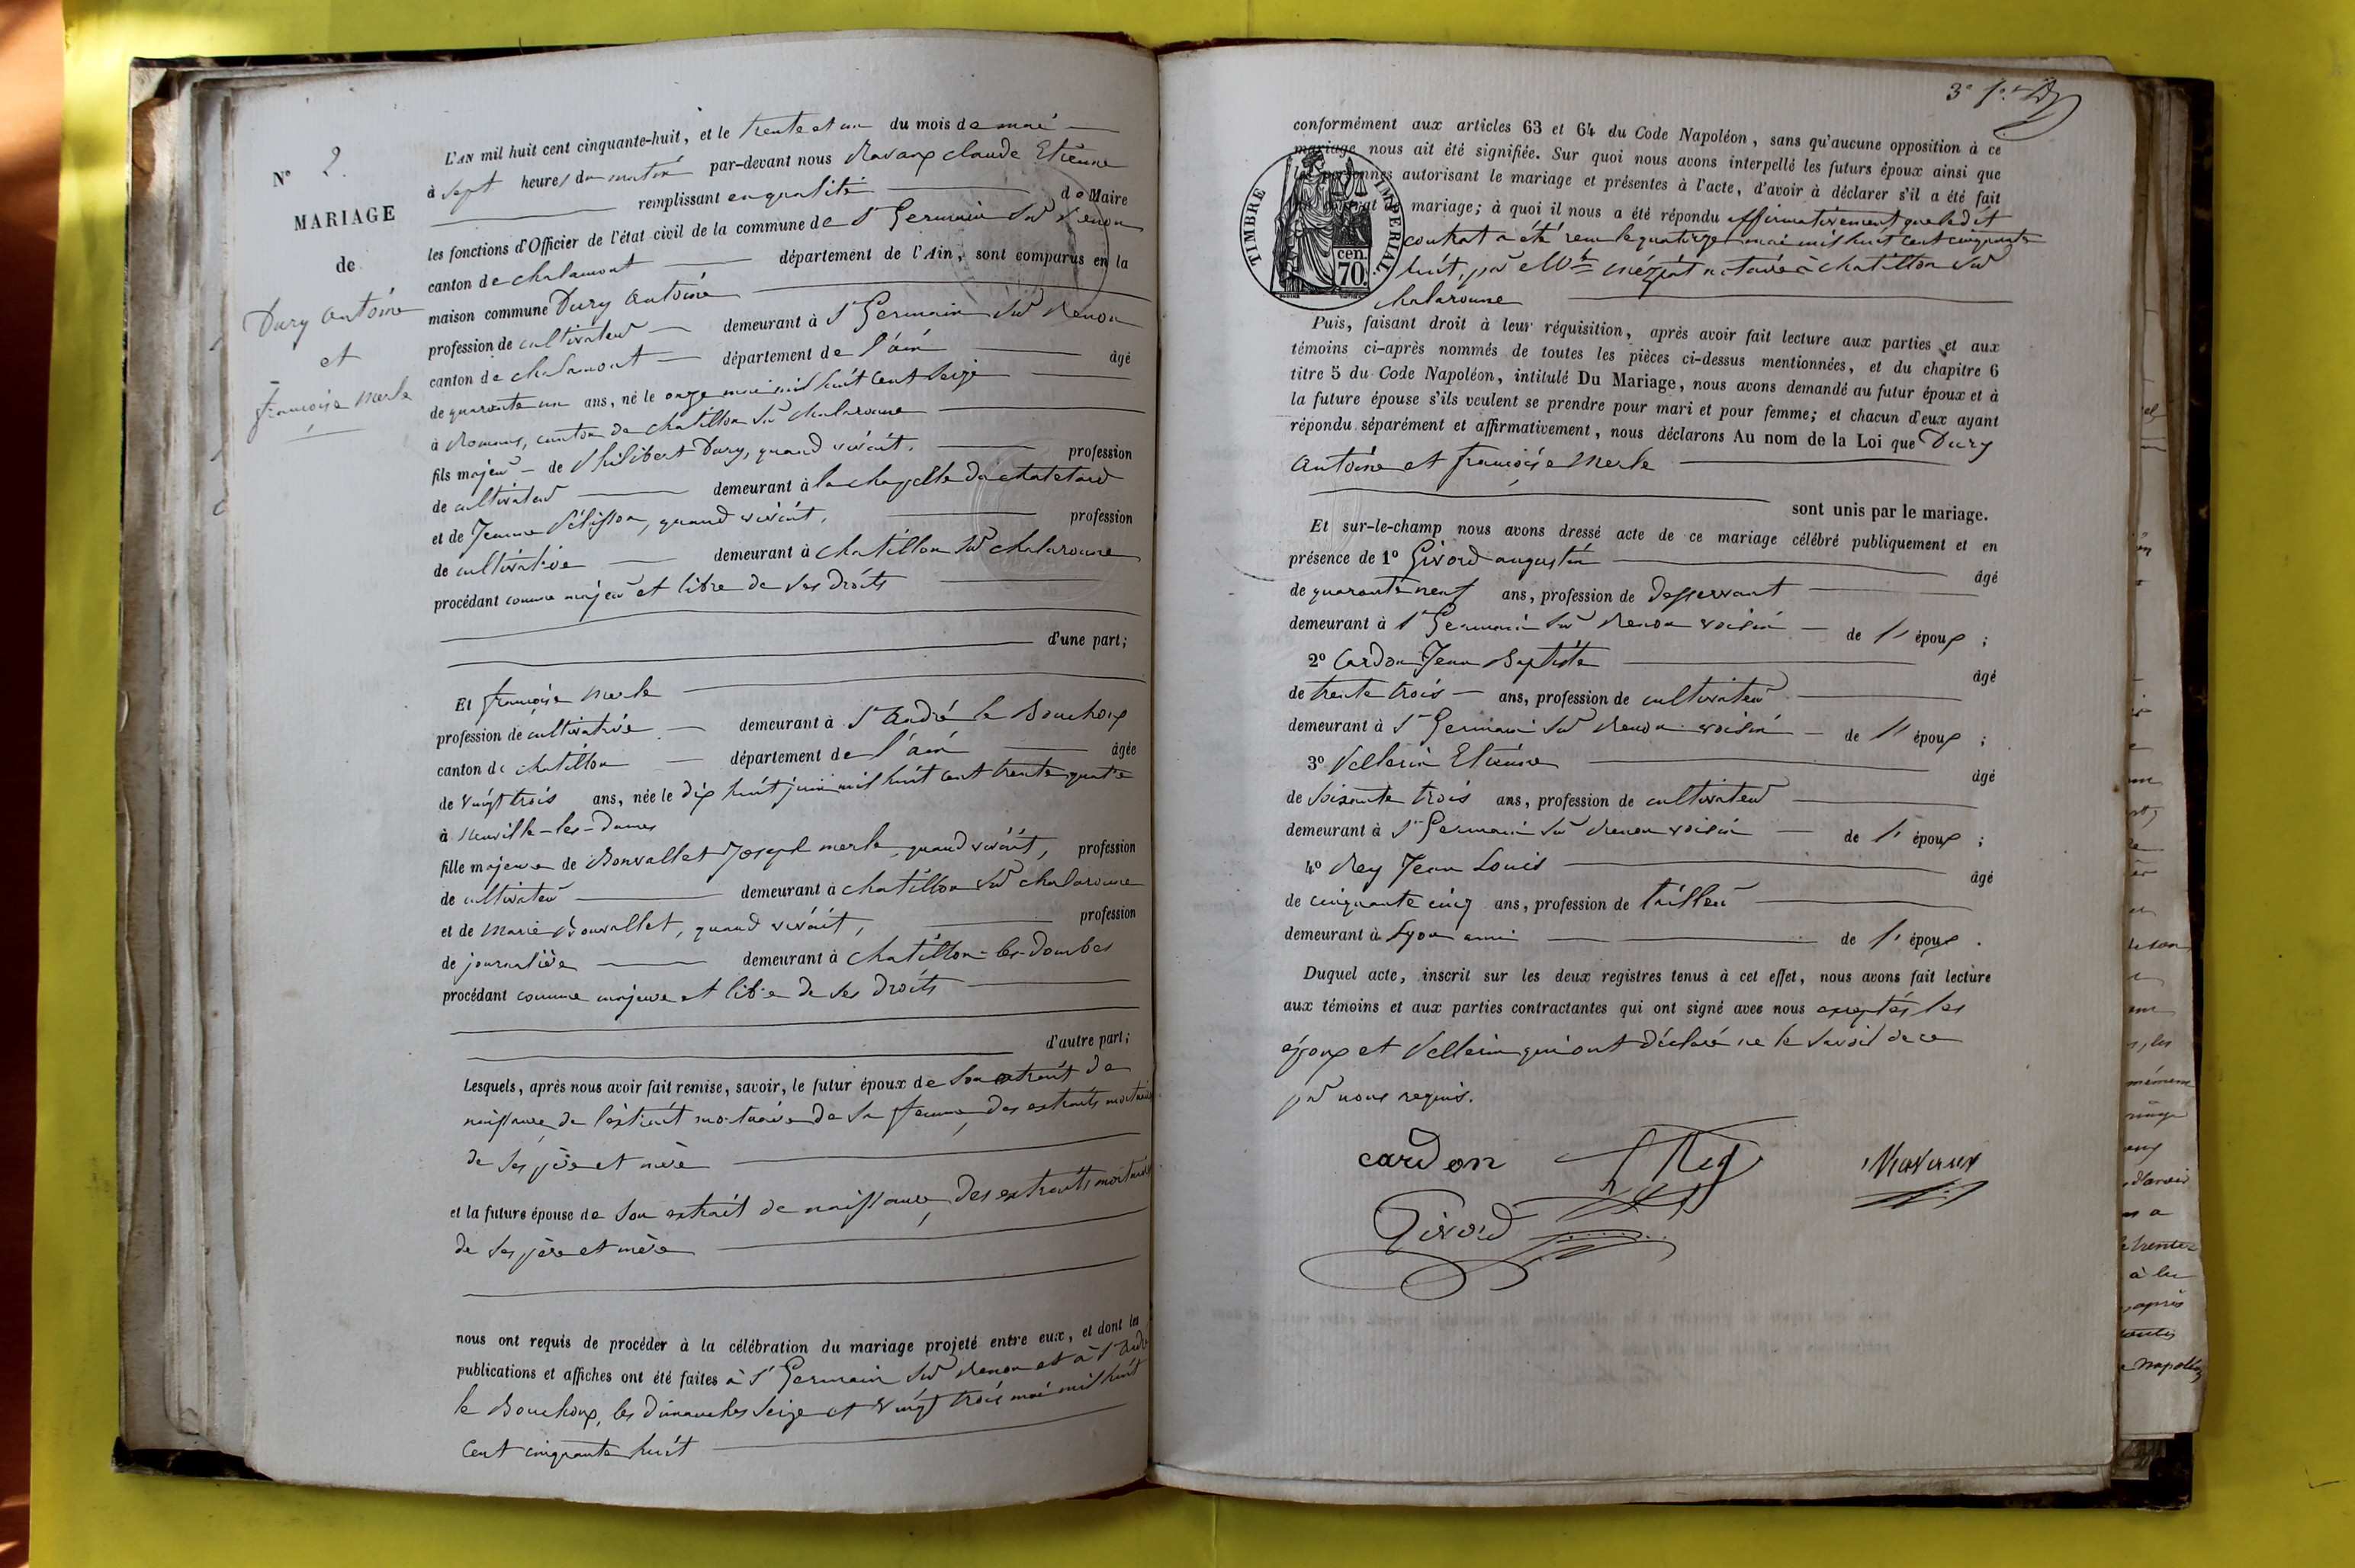 N° 2.
MARIAGE
de
Dury Antoine
et
françoise Merle
L'AN mil huit cent cinquante-huit, et le trente et un du mois de mai
à sept heures du matin par-devant nous Ravaux claude Etienne
remplissant en qualité de Maire
les fonctions d'Officier de l'état civil de la commune de St Germain sur Renon
canton de chalamont département de l'Ain, sont comparus en la
maison commune Dury Antoine
profession de cultivateur demeurant à St Germain sur Renon
canton de chalamont département de l'ain âgé
de quarante un ans, né le onze mai mil huit cent seize
à Romans, canton de chatillon sur chalaronne
fils majeur de Philibert Dury, quand vivait, profession
de cultivateur demeurant à la chapelle du chatelard
et de Jeanne Pélisson, quand vivait, profession
de cultivatrice demeurant à chatillon sur chalaronne
procédant comme majeur et libre de ses droits
d'une part;
Et françoise Merle
profession de cultivatrice demeurant à St André le Bouchoux
canton de chatillon département de l'ain âgée
de vingt trois ans, née le dix huit juin mil huit cent trente quatre
à Neuville-les-Dames
fille majeure de Bonvallet Joseph merle, quand vivait, profession
de cultivateur demeurant à chatillon sur chalaronne
et de Marie Bonvallet, quand vivait, profession
de journalière demeurant à chatillon-les-Dombes
procédant comme majeure et libre de ses droits
d'autre part;
Lesquels, après nous avoir fait remise, savoir, le futur époux de son extrait de
naissance, de l'extrait mortuaire de sa femme, des extraits mortuaires
de ses père et mère
et la future épouse de son extrait de naissance, des extraits mortuaires
de ses père et mère
nous ont requis de procéder à la célébration du mariage projeté entre eux, et dont les
publications et affiches ont été faites à St Germain sur Renon et à St André
le Bouchoux, les dimanches seize et vingt trois mai mil huit
cent cinquante huit
3e
conformément aux articles 63 et 64 du Code Napoléon, sans qu'aucune opposition à ce
mariage nous ait été signifiée. Sur quoi nous avons interpellé les futurs époux ainsi que
les personnes autorisant le mariage et présentes à l'acte, d'avoir à déclarer s'il a été fait
contrat de mariage; à quoi il nous a été répondu affirmativement, que ledit
contrat a été reçu le quatorze mai mil huit cent cinquante
huit, par Me notaire à chatillon sur
chalaronne
TIMBRE IMPERIAL
70 cen.
Puis, faisant droit à leur réquisition, après avoir fait lecture aux parties et aux
témoins ci-après nommés de toutes les pièces ci-dessus mentionnées, et du chapitre 6
titre 5 du Code Napoléon, intitulé Du Mariage, nous avons demandé au futur époux et à
la future épouse s'ils veulent se prendre pour mari et pour femme; et chacun d'eux ayant
répondu séparément et affirmativement, nous déclarons Au nom de la Loi que Dury
Antoine et françoise Merle
sont unis par le mariage.
Et sur-le-champ nous avons dressé acte de ce mariage célébré publiquement et en
présence de 1° Givord augustin âgé
de quarante neuf ans, profession de desservant
demeurant à St Germain sur Renon voisin de l' époux ;
2° Cardon Jean Baptiste âgé
de trente trois ans, profession de cultivateur
demeurant à St Germain sur Renon voisin de l' époux ;
3° Vellerin Etienne âgé
de soixante trois ans, profession de cultivateur
demeurant à St Germain sur Renon voisin de l' époux ;
4° Rey Jean Louis âgé
de cinquante cinq ans, profession de tailleur
demeurant à Lyon ami de l' époux .
Duquel acte, inscrit sur les deux registres tenus à cet effet, nous avons fait lecture
aux témoins et aux parties contractantes qui ont signé avec nous exceptés les
époux et Vellerin qui ont déclaré ne le savoir de ce
par nous requis.
cardon Rey Ravaux
Givord